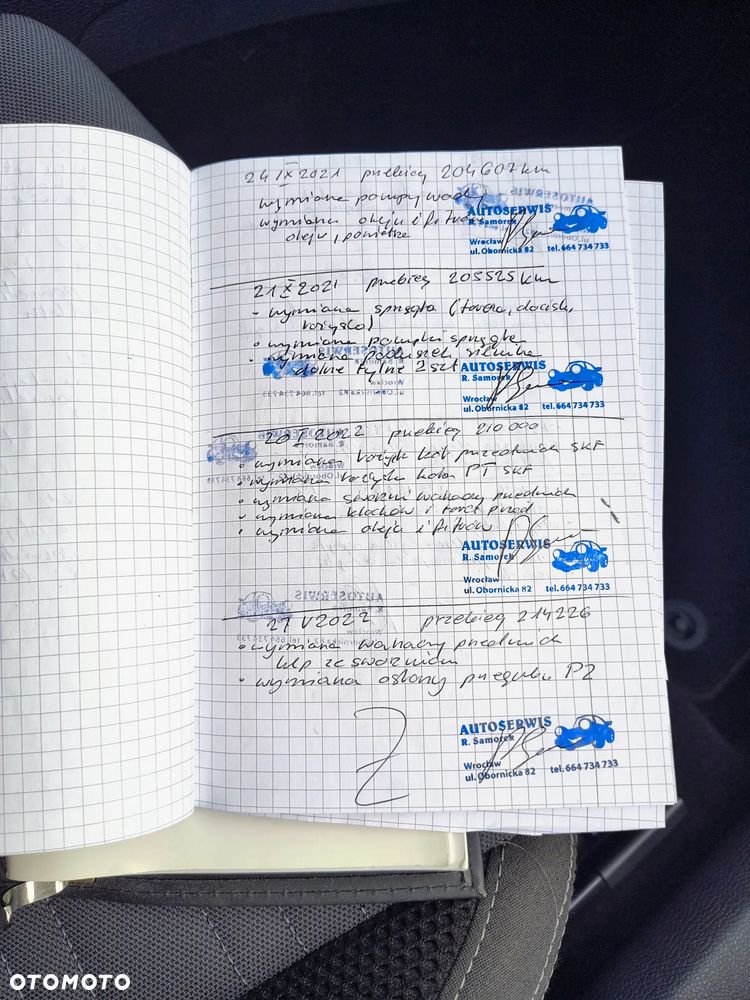 24 IX 2021 przebieg 204607 km
wymiana pompy wody
wymiana oleju i filtrów
oleju, powietrza
AUTOSERWIS
R. Samorek
Wrocław
ul. Obornicka 82 tel. 664 734 733
21 X 2021 przebieg 205525 km
• wymiana sprzęgła (tarcza, docisk,
łożysko)
• wymiana pompki sprzęgła
• wymiana poduszek silnika
dolne tylne 2 szt
AUTOSERWIS
R. Samorek
Wrocław
ul. Obornicka 82 tel. 664 734 733
20 I 2022 przebieg 210 000
• wymiana łożysk kół przednich SKF
• wymiana łożyska koła PT SKF
• wymiana sworzni wahaczy przednich
• wymiana klocków i tarcz przód
• wymiana oleju i filtrów
AUTOSERWIS
Wrocław
ul. Obornicka 82 tel. 664 734 733
27 V 2022 przebieg 214226
• wymiana wahaczy przednich
kpl ze sworzniem
• wymiana osłony przegubu PZ
AUTOSERWIS
R. Samorek
Wrocław
ul. Obornicka 82 tel. 664 734 733
OTOMOTO